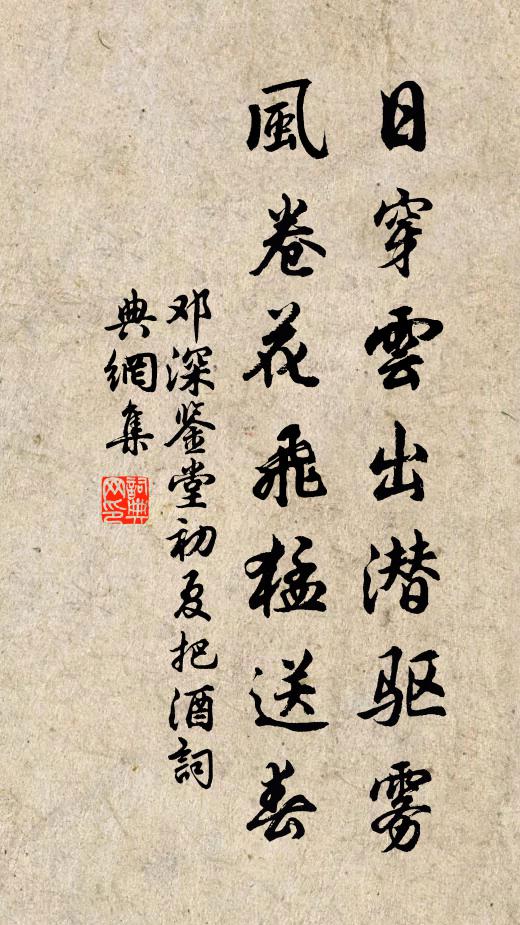 日穿雲出潜驱雾
風卷花飛猛送春
邓深鉴堂初夏把酒詞
典網集
詞典
网印